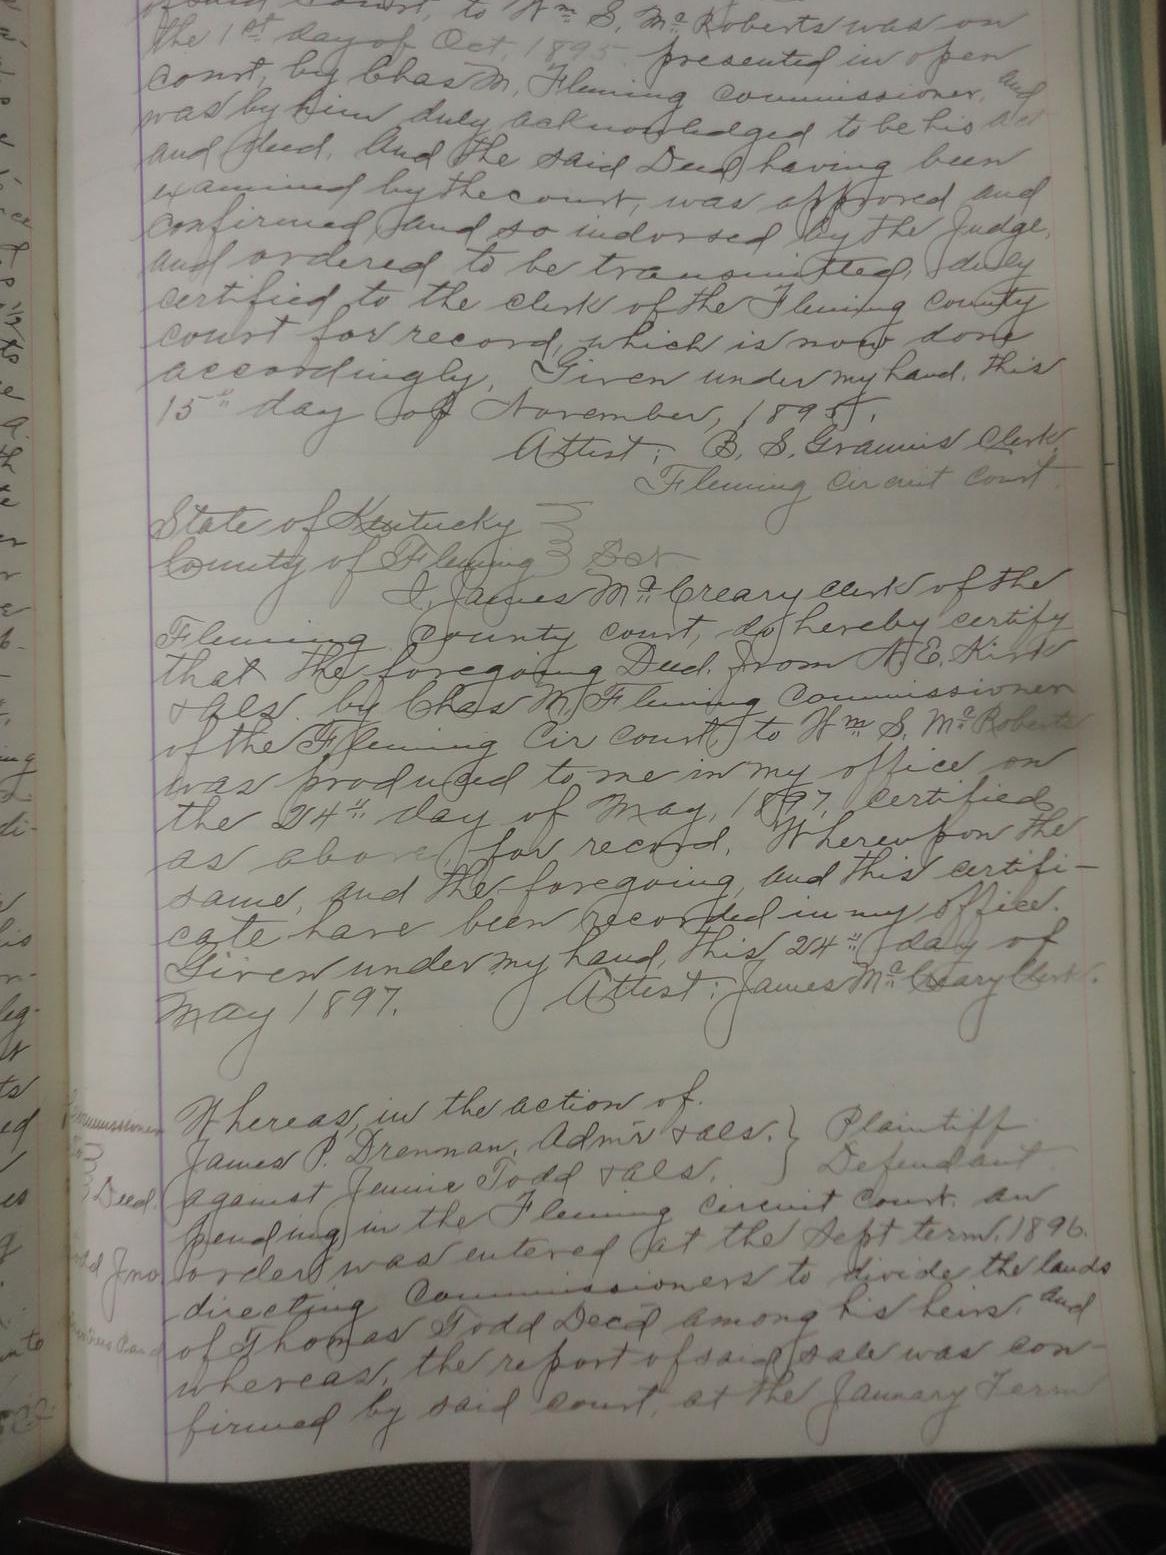 of said Court, to Wm S. McRoberts was on
the 1st day of Oct, 1895 presented in open
court, by Chas M. Fleming commissioner, and
was by him duly acknowledged to be his act
and deed. And the said Deed having been
examined by the court, was approved and
confirmed, and so indorsed by the Judge,
and ordered to be transmitted, duly
certified to the clerk of the Fleming county
court for record, which is now done
accordingly, Given under my hand, this
15" day of November, 1895.
Attest; B. S. Grannis Clerk
Fleming circuit court.
State of Kentucky
County of Fleming } Sct
I, James McCreary clerk of the
Fleming county court, do hereby certify
that the foregoing Deed. from A. E. Kirk
&als. by Chas M. Fleming commissioner
of the Fleming Cir court, to Wm S. McRoberts
was produced to me in my office on
the 24" day of May, 1897, certified
as above, for record. Whereupon the
same, and the foregoing, and this certifi-
cate have been recorded in my office.
Given under my hand, this 24" day of
May 1897. Attest: James McCreary Clerk.
Whereas, in the action of.
Commissioner
James P. Drennan, Adm'r &als. } Plaintiff
To
against Jennie Todd &als. Defendant
Deed.
pending in the Fleming circuit court. an
order was entered at the Sept term, 1896.
Jno
directing commissioners to divide the lands
of Thomas Todd Decd among his heirs, and
whereas, the report of said sale was con-
firmed by said court, at the January Term